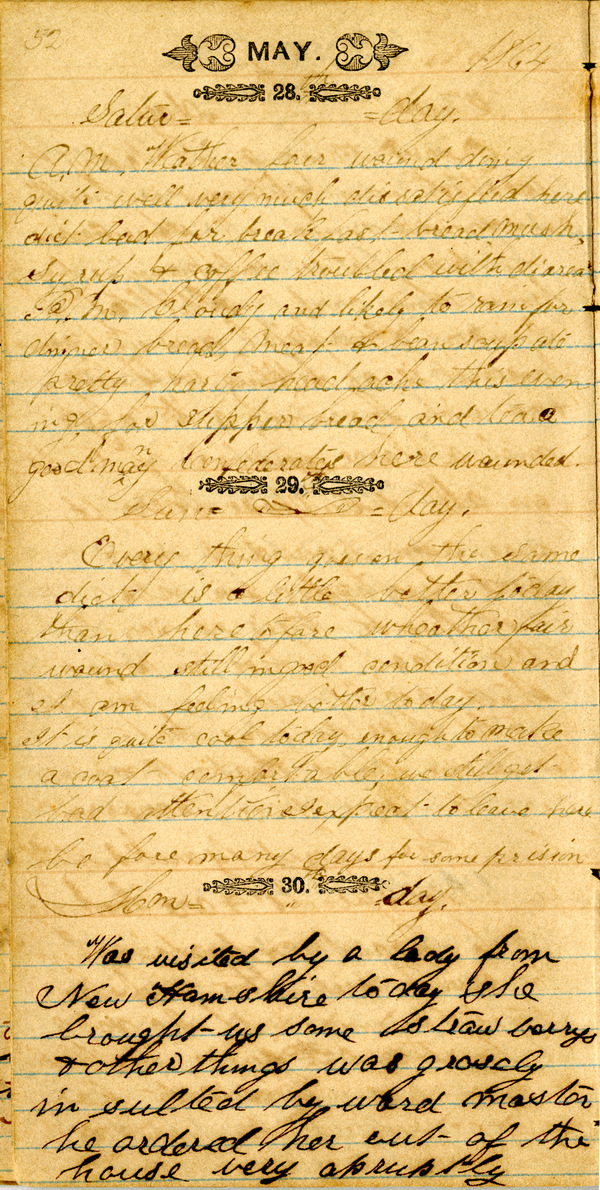 52
MAY. 1864
28.th
Satur= =day.
A.M. Weather fair wound doing
quite well very much dissatisfied here
diet bad for breakfast bread mush,
syrup & coffee troubled with diarea
P.M. Cloudy and likely to rain for
dinner bread meat & bean soup ate
pretty hart head ache this even
ing, for supper bread and tea a
good many confederates here wounded.
29.
Sun= =day.
Every thing quien the same
diet is a little better today
than here to fare wheather fair
wound still in good condition and
I am feeling better today.
It is quite cool today enough to make
a coat comfortable, we still get
bad attention I expect to leave here
be fore many days for some prision
30.th
Mon= " day.
Was visited by a lady from
New Hamshire today she
brought us some straw berrys
& other things was grosely
in sulted by ward master
he ordered her out of the
house very apruptly